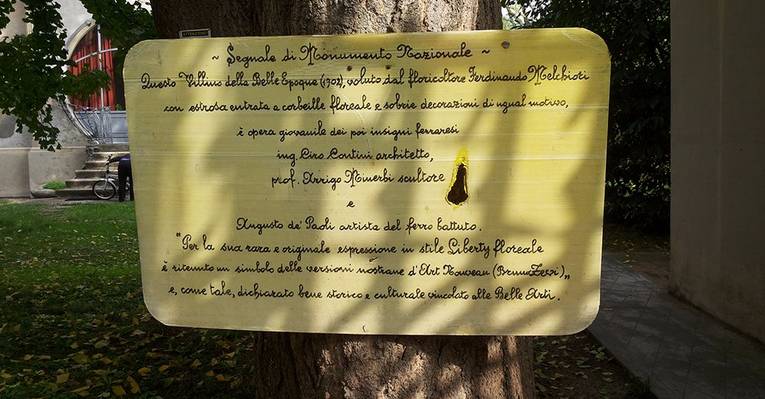 ~ Segnale di Monumento Nazionale ~
Questo Villino della Belle Epoque (1904), voluto dal floricoltore Ferdinando Melchiori
con estrosa entrata a corbeille floreale e sobrie decorazioni di ugual motivo,
è opera giovanile dei poi insigni ferraresi
ing. Ciro Contini architetto,
prof. Arrigo Minerbi scultore
e
Augusto de' Paoli artista del ferro battuto.
"Per la sua rara e originale espressione in stile Liberty floreale
è ritenuto un simbolo delle versioni nostrane d'Art Nouveau (Bruno Zevi)„
e, come tale, dichiarato bene storico e culturale vincolato alle Belle Arti.